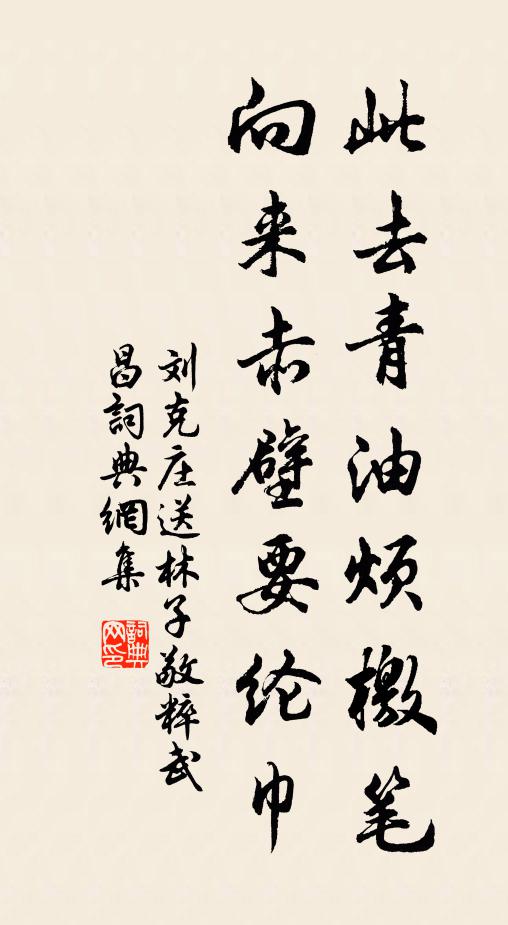 此去青油烦檄笔
向来赤壁要纶巾
刘克庄送林子敬粹武
昌詞典網集
詞典网印